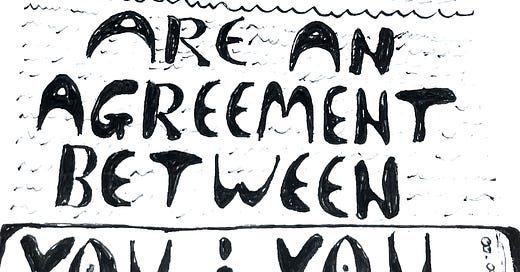 ARE AN
AGREEMENT
BETWEEN
YOU & YOU